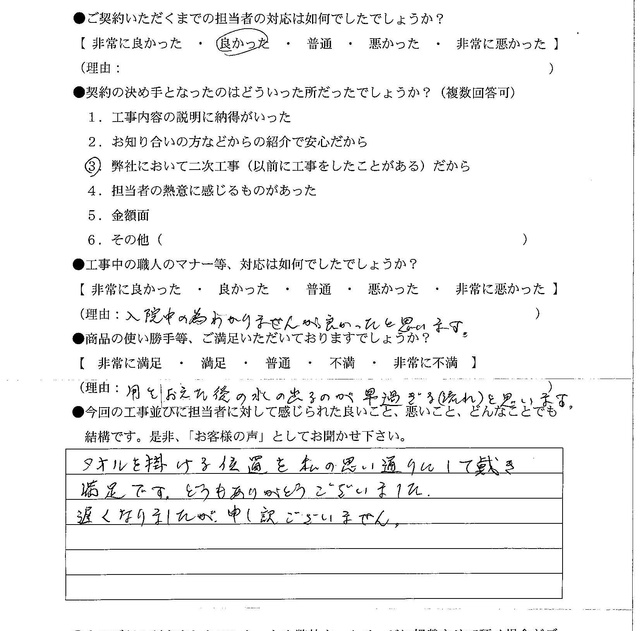 ●ご契約いただくまでの担当者の対応は如何でしたでしょうか？
【 非常に良かった ・ 良かった ・ 普通 ・ 悪かった ・ 非常に悪かった 】
（理由： ）
●契約の決め手となったのはどういった所だったでしょうか？（複数回答可）
１．工事内容の説明に納得がいった
２．お知り合いの方などからの紹介で安心だから
３．弊社において二次工事（以前に工事をしたことがある）だから
４．担当者の熱意に感じるものがあった
５．金額面
６．その他（ ）
●工事中の職人のマナー等、対応は如何でしたでしょうか？
【 非常に良かった ・ 良かった ・ 普通 ・ 悪かった ・ 非常に悪かった 】
（理由：入院中の為わかりませんが良かったと思います。）
●商品の使い勝手等、ご満足いただいておりますでしょうか？
【 非常に満足 ・ 満足 ・ 普通 ・ 不満 ・ 非常に不満 】
（理由：用をおえた後の水の出るのが早過ぎる(流れ)と思います。）
●今回の工事並びに担当者に対して感じられた良いこと、悪いこと、どんなことでも
結構です。是非、「お客様の声」としてお聞かせ下さい。
タオルを掛ける位置を私の思い通りにして戴き
満足です。どうもありがとうございました。
遅くなりましたが、申し訳ございません。